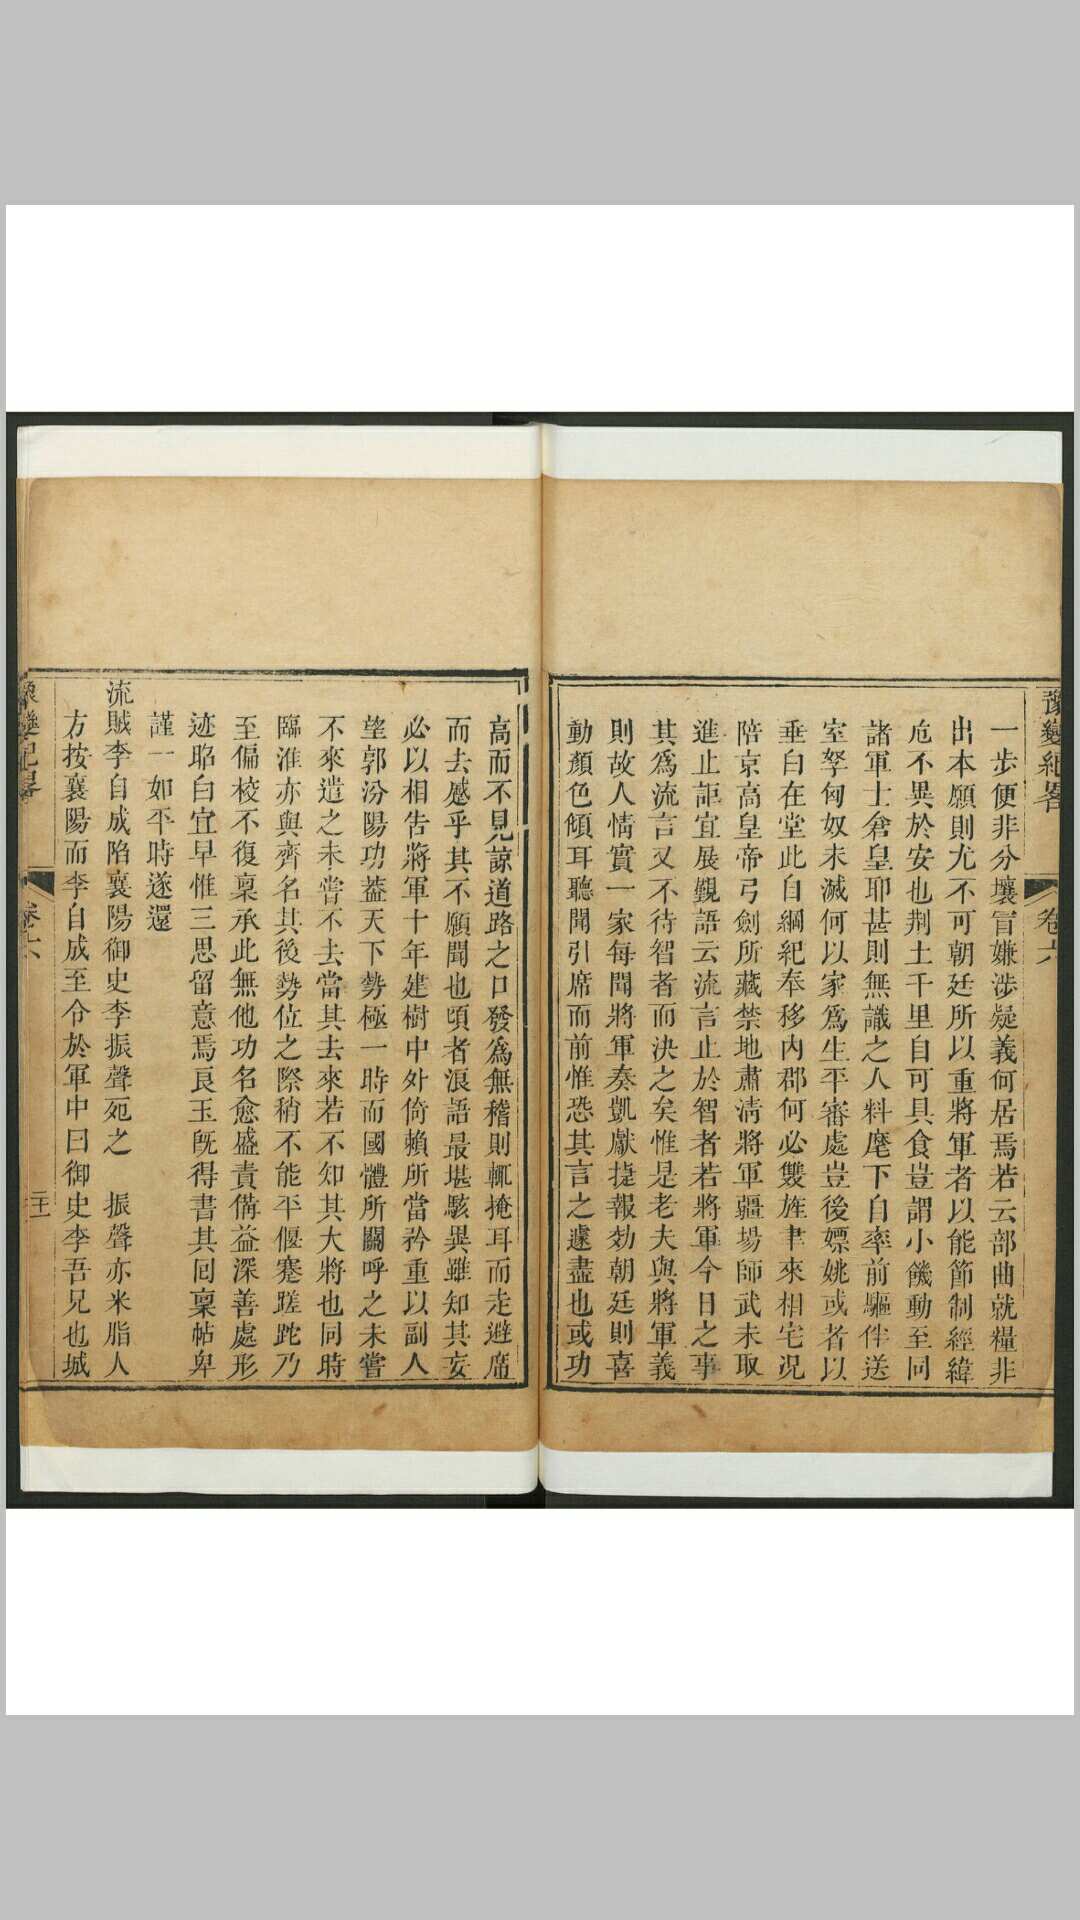 豫變紀畧
卷六
一步便非分壤冒嫌涉疑義何居焉若云部曲就糧非
出本願則尤不可朝廷所以重將軍者以能節制經緯
危不異於安也荆土千里自可具食豈謂小饑動至同
諸軍士倉皇耶甚則無識之人料麾下自率前驅伴送
室孥匈奴未滅何以家爲生平審處豈後嫖姚或者以
垂白在堂此自綱紀奉移内郡何必雙旌聿來相宅况
陪京高皇帝弓劍所藏禁地肅淸將軍疆場師武未取
進止詎宜展覲語云流言止於智者若將軍今日之事
其爲流言又不待智者而決之矣惟是老夫與將軍義
則故人情實一家每聞將軍奏凱獻捷報効朝廷則喜
動顏色傾耳聽聞引席而前惟恐其言之遽盡也或功
高而不見諒道路之口發爲無稽則輒掩耳而走避席
而去感乎其不願聞也頃者浪語最堪駭異雖知其妄
必以相告將軍十年建樹中外倚賴所當矜重以副人
望郭汾陽功葢天下勢極一時而國體所關呼之未嘗
不來遣之未嘗不去當其去來若不知其大將也同時
臨淮亦與齊名其後勢位之際稍不能平偃蹇蹉跎乃
至偏校不復稟承此無他功名愈盛責備益深善處形
迹昭白宜早惟三思留意焉良玉旣得書其囘稟帖卑
謹一如平時遂還
流賊李自成陷襄陽御史李振聲死之 振聲亦米脂人
方按襄陽而李自成至令於軍中曰御史李吾兄也城
豫變紀畧
卷六
二十一